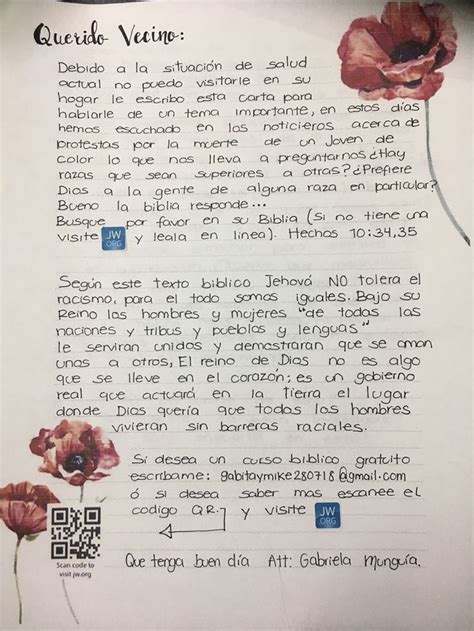 Querido Vecino:
Debido a la situación de salud
actual no puedo visitarle en su
hogar le escribo esta carta para
hablarle de un tema importante, en estos días
hemos escuchado en los noticieros acerca de
protestas por la muerte de un Joven de
color lo que nos lleva a preguntarnos ¿Hay
razas que sean superiores a otras? ¿Prefiere
Dios a la gente de alguna raza en particular?
Bueno la biblia responde...
Busque por favor en su Biblia (Si no tiene una
visite JW.ORG y leala en linea). Hechos 10:34,35
Según este texto biblico Jehová NO tolera el
racismo, para el todo somos iguales. Bajo su
Reino los hombres y mujeres "de todas las
naciones y tribus y pueblos y lenguas"
le serviran unidos y demostraran que se aman
unos a otros, El reino de Dios no es algo
que se lleve en el corazón; es un gobierno
real que actuará en la tierra el lugar
donde Dios quería que todos los hombres
vivieran sin barreras raciales.
Si desea un curso biblico gratuito
escribame: gabitaymike280718@gmail.com
ó si desea saber mas escanee el
codigo Q.R. y visite JW.ORG
Scan code to
visit jw.org
Que tenga buen día Att: Gabriela Munguía.